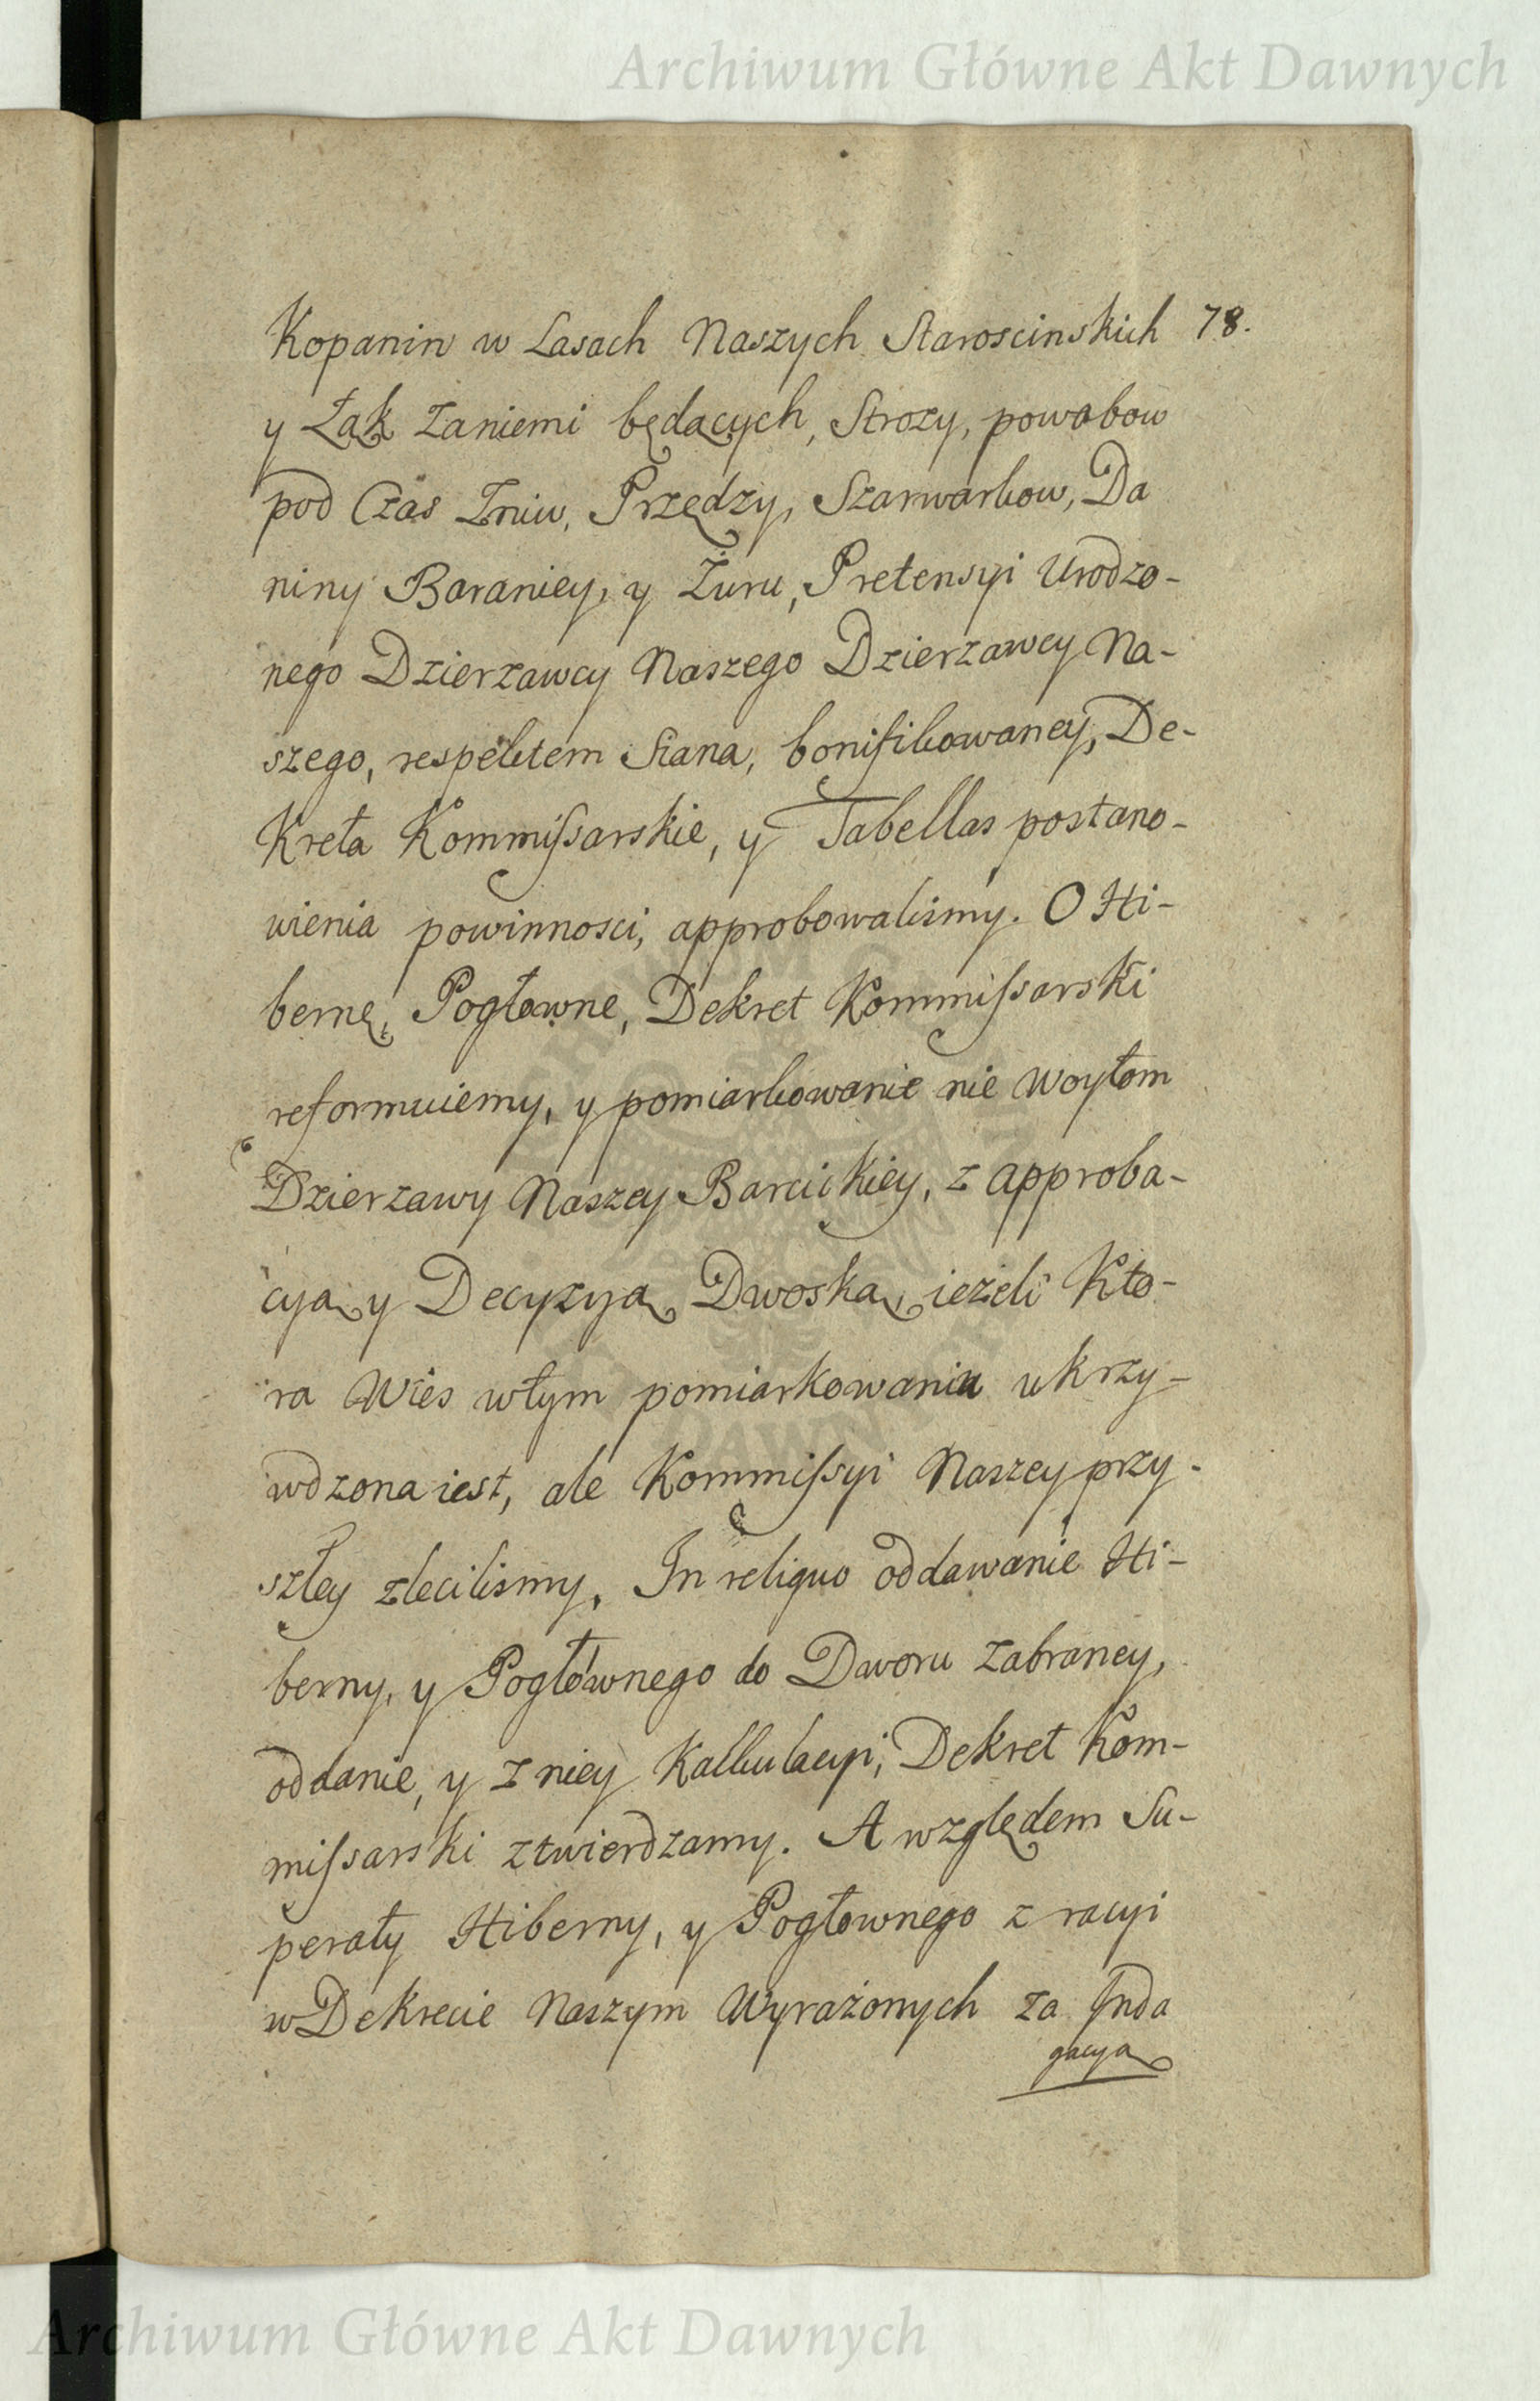 Archiwum Główne Akt Dawnych
78.
Kopanin w Lasach Naszych Staroscinskich
y Łąk zaniemi będących, Strozy, powabow
pod Czas Zniw, Przędzy, Szarwarkow, Da
niny Baraniey, y Żuru, Pretensyi Urodzo-
nego Dzierzawcy Naszego Dzierzawcy Na-
szego, respektem Siana, bonifikowaney, De-
Kreta Kommissarskie, y Tabellas postano-
wienia powinnosci, approbowalismy. O Hi-
bernę, Pogłowne, Dekret Kommissarski
reformuiemy, y pomiarkowanie nie Woytom
Dzierzawy Naszey Barcickiey, z approba-
cyą y Decyzyą Dworską, ieżeli Kto-
ra Wies wtym pomiarkowaniu ukrzy-
wdzona iest, ale Kommissyi Naszey przy-
szłey zlecilismy, In reliquo oddawanie Hi-
berny, y Pogłównego do Dworu zabraney,
oddanie, y z niey Kalkulacyi, Dekret Kom-
missarski ztwierdzamy. A względem Su-
peraty Hiberny, y Pogłownego z racyi
w Dekrecie Naszym Wyrażonych za Inda
gacyą
Archiwum Główne Akt Dawnych